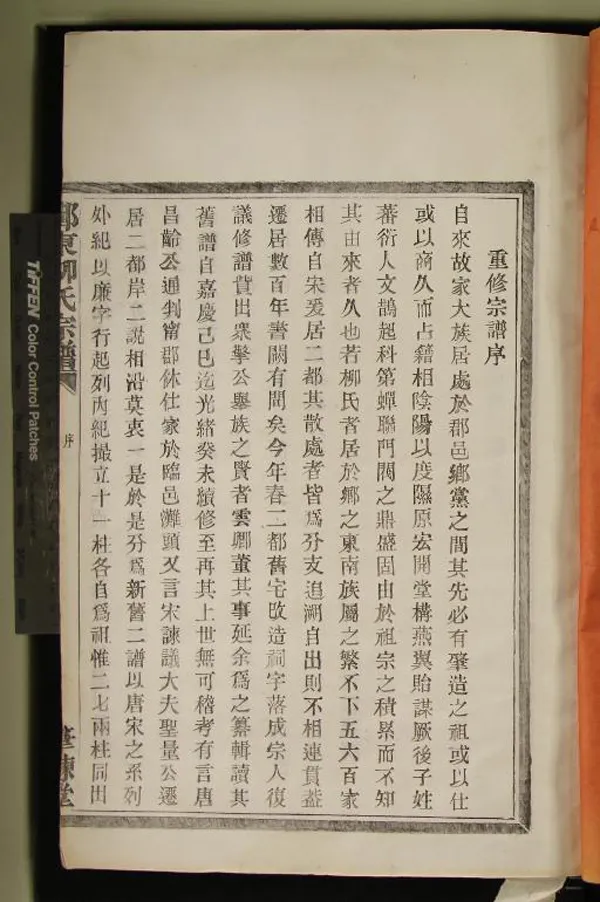 重修宗譜序
自來故家大族居處於郡邑鄉黨之間其先必有肇造之祖或以仕
或以商久而占籍相陰陽以度隰原宏開堂構燕翼貽謀厥後子姓
蕃衍人文鵲起科第蟬聯門閥之鼎盛固由於祖宗之積累而不知
其由來者久也若柳氏者居於鄉之東南族屬之繁不下五六百家
相傳自宋爰居二都其散處者皆爲分支追溯自出則不相連貫蓋
遷居數百年書闕有間矣今年春二都舊宅改造祠宇落成宗人復
議修譜貲出衆擎公舉族之賢者雲卿董其事延余爲之纂輯讀其
舊譜自嘉慶己巳迄光緒癸未續修至再其上世無可稽考有言唐
昌齡公通判甯郡休仕家於臨邑灘頭又言宋諫議大夫聖量公遷
居二都岸二說相沿莫衷一是於是分爲新舊二譜以唐宋之系列
外紀以廉字行起列內紀撮立十一柱各自爲祖惟二七兩柱同出
東柳氏宗譜
序
諫堂
TIFFEN Color Control Patches